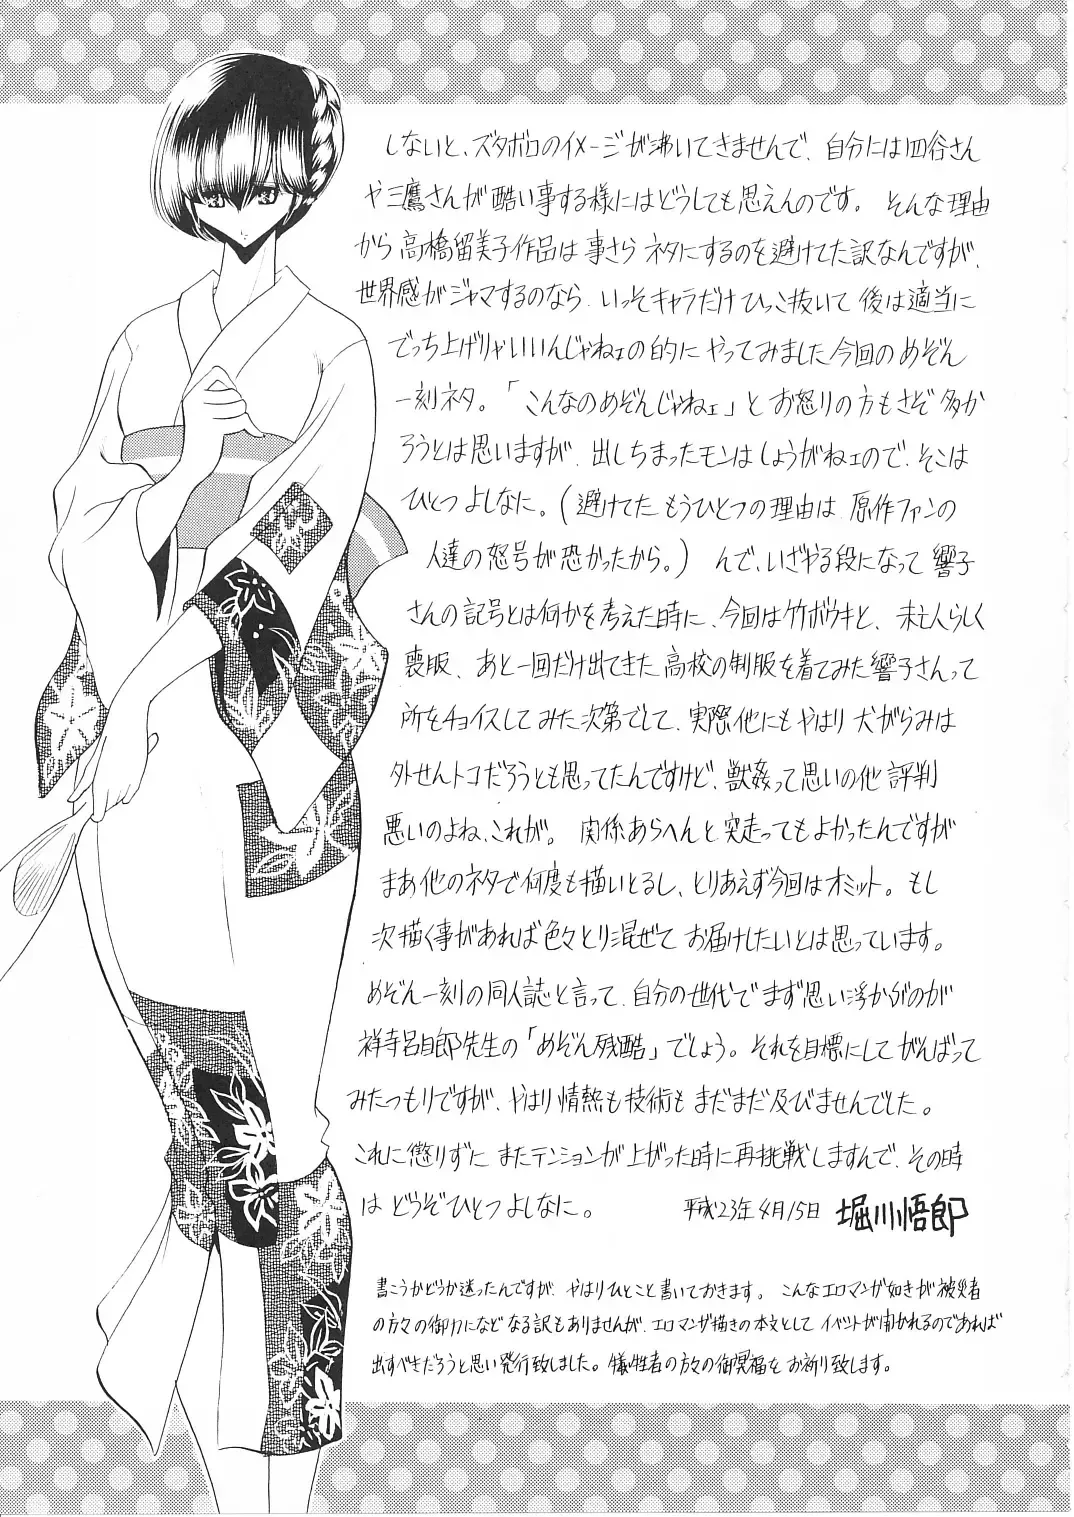 しないと、ズタボロのイメージが沸いてきませんで、自分には四谷さん
や三鷹さんが酷い事する様にはどうしても思えんのです。そんな理由
から高橋留美子作品は事さらネタにするのを避けてた訳なんですが、
世界感がジャマするのなら、いっそキャラだけひっこ抜いて後は適当に
でっち上げりゃいいんじゃねェの的にやってみました今回のめぞん
一刻ネタ。「こんなのめぞんじゃねェ」とお怒りの方もさぞ多か
ろうとは思いますが、出しちまったモンはしょうがねェので、そこは
ひとつよしなに。(避けてたもうひとつの理由は原作ファンの
人達の怒号が恐かったから。)んで、いざやる段になって響子
さんの記号とは何かを考えた時に、今回は竹ボウキと、未亡人らしく
喪服、あと一回だけ出てきた高校の制服を着てみた響子さんって
所をチョイスしてみた次第でして、実際他にもやはり犬がらみは
外せんトコだろうとも思ってたんですけど、獣姦って思いの他評判
悪いのよね、これが。関係あらへんと突走ってもよかったんですが
まあ他のネタで何度も描いとるし、とりあえず今回はオミット。もし
次描く事があれば色々とり混ぜてお届けしたいとは思っています。
めぞん一刻の同人誌と言って、自分の世代でまず思い浮かぶのが
祥寺呂自郎先生の「めぞん残酷」でしょう。それを目標にしてがんばって
みたつもりですが、やはり情熱も技術もまだまだ及びませんでした。
これに懲りずにまたテンションが上がった時に再挑戦しますんで、その時
はどうぞひとつよしなに。 平成23年4月15日 堀川悟郎
書こうかどうか迷ったんですが、やはりひとこと書いておきます。こんなエロマンガ如きが被災者
の方々の御力になどなる訳もありませんが、エロマンガ描きの本文としてイベントが開かれるのであれば
出すべきだろうと思い発行致しました。犠牲者の方々の御冥福をお祈り致します。